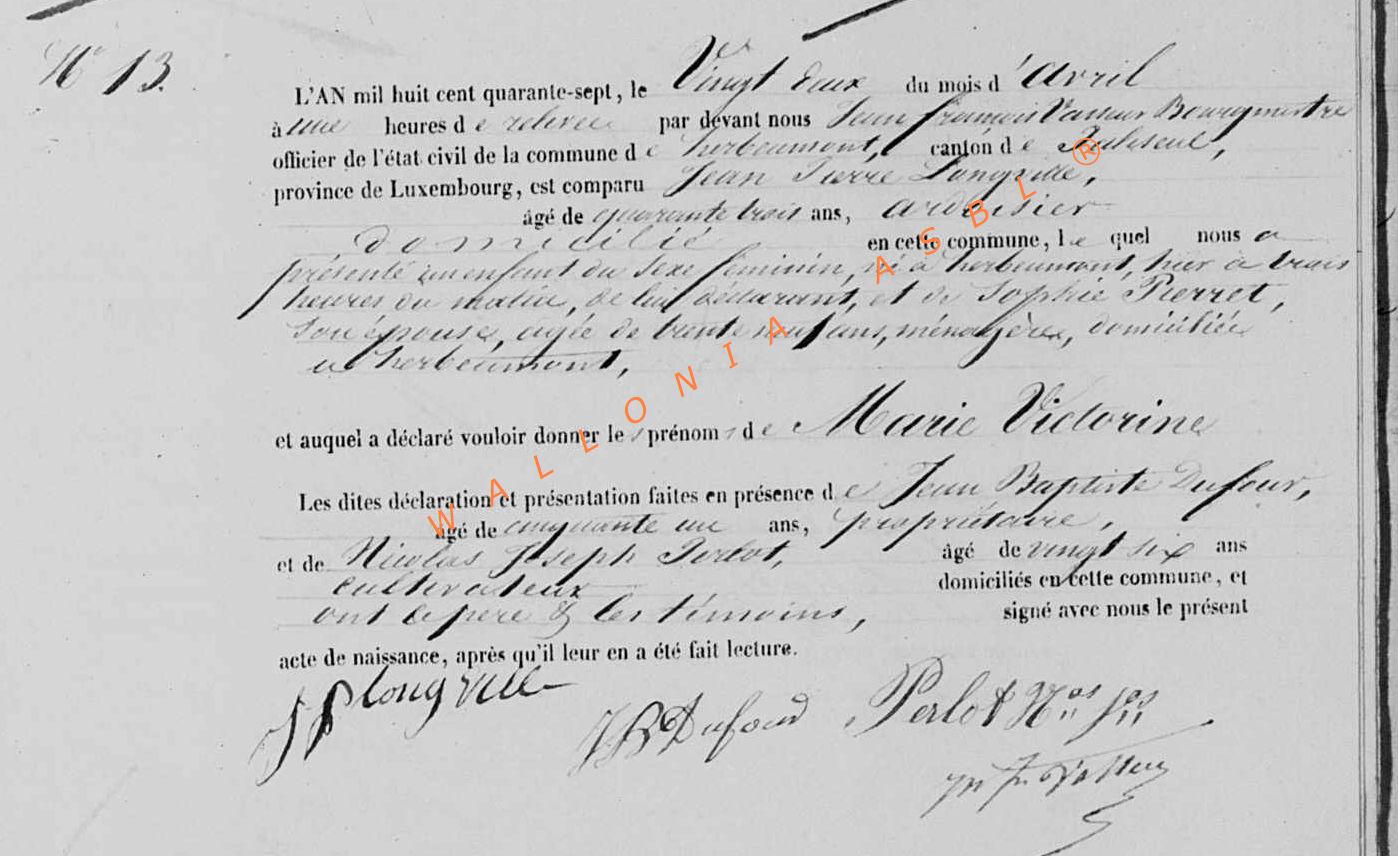 N° 13.
L'AN mil huit cent quarante-sept, le Vingt deux du mois d'Avril
à une heures de relevée par devant nous Jean françois Vasseur Bourgmestre
officier de l'état civil de la commune de herbeumont, canton de Paliseul,
province de Luxembourg, est comparu Jean Pierre Longville,
âgé de quarante trois ans, ardoisier
domicilié en cette commune, le quel nous a
présenté un enfant du sexe féminin, né à herbeumont, hier à trois
heures du matin, de lui déclarant, et de Sophie Pierret,
Son épouse, agée de trente neuf ans, ménagère, domiciliée
a herbeumont,
et auquel a déclaré vouloir donner les prénoms de Marie Victorine
Les dites déclaration et présentation faites en présence de Jean Baptiste Dufour,
âgé de cinquante un ans, propriétaire,
et de Nicolas Joseph Perlot, âgé de vingt six ans
cultivateur domiciliés en cette commune, et
ont le père & les témoins, signé avec nous le présent
acte de naissance, après qu'il leur en a été fait lecture.
JP longville
JB Dufour Perlot Nas Jph
WALLONIA ASBL ®